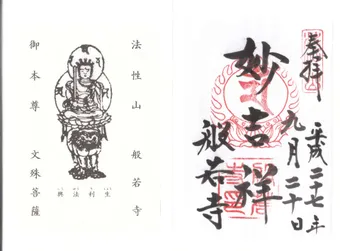 奉拝
平成二十七年
九月二十日
妙吉祥
般若寺
法性山　般若寺
御本尊　文殊菩薩
興法利生